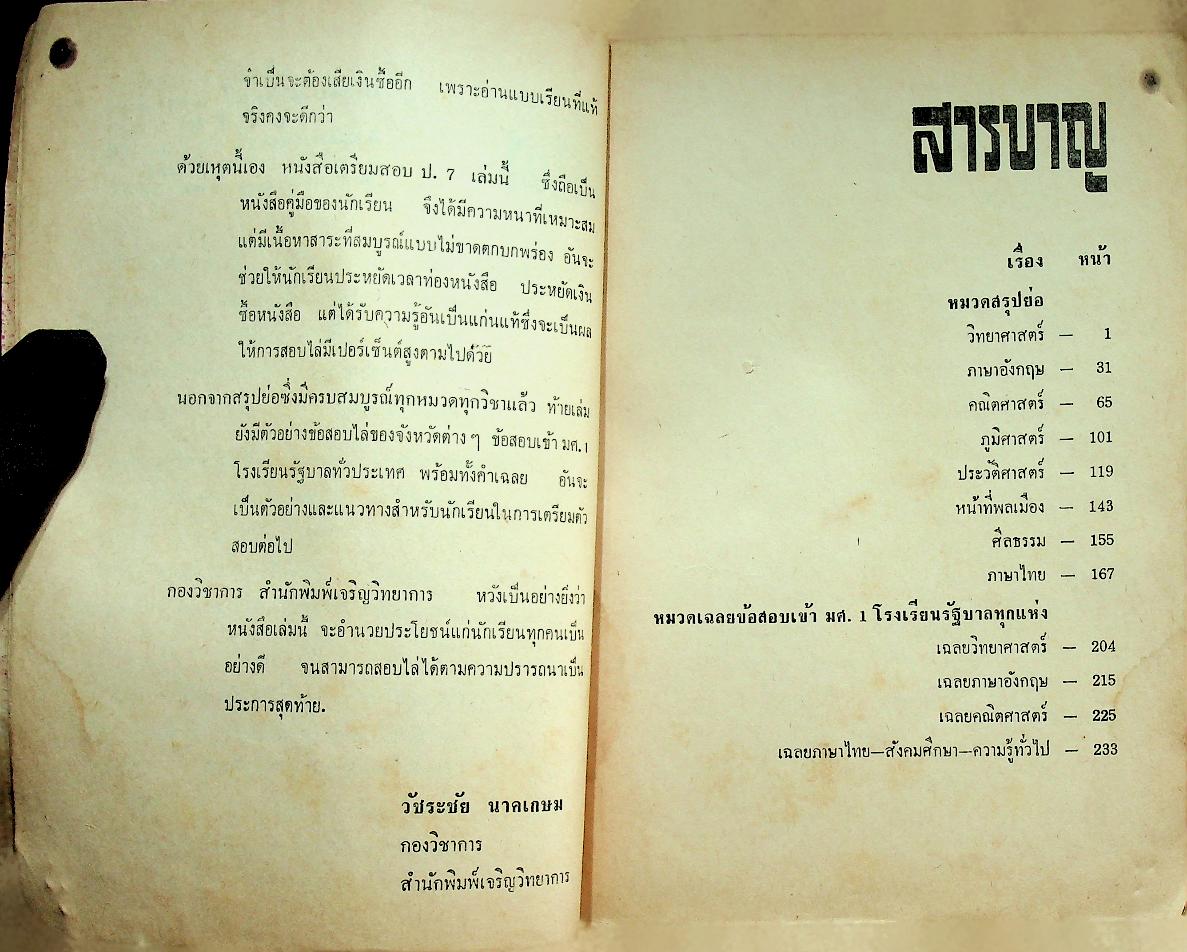 จำเป็นจะต้องเสียเงินซื้ออีก เพราะอ่านแบบเรียนที่แท้
จริงคงจะดีกว่า
ด้วยเหตุนี้เอง หนังสือเตรียมสอบ ป. 7 เล่มนี้ ซึ่งถือเป็น
หนังสือคู่มือของนักเรียน จึงได้มีความหนาที่เหมาะสม
แต่มีเนื้อหาสาระที่สมบูรณ์แบบไม่ขาดตกบกพร่อง อันจะ
ช่วยให้นักเรียนประหยัดเวลาท่องหนังสือ ประหยัดเงิน
ซื้อหนังสือ แต่ได้รับความรู้อันเป็นแก่นแท้ซึ่งจะเป็นผล
ให้การสอบไล่มีเปอร์เซ็นต์สูงตามไปด้วย
นอกจากสรุปย่อซึ่งมีครบสมบูรณ์ทุกหมวดทุกวิชาแล้ว ท้ายเล่ม
ยังมีตัวอย่างข้อสอบไล่ของจังหวัดต่าง ๆ ข้อสอบเข้า มศ. 1
โรงเรียนรัฐบาลทั่วประเทศ พร้อมทั้งคำเฉลย อันจะ
เป็นตัวอย่างและแนวทางสำหรับนักเรียนในการเตรียมตัว
สอบต่อไป
กองวิชาการ สำนักพิมพ์เจริญวิทยาการ หวังเป็นอย่างยิ่งว่า
หนังสือเล่มนี้ จะอำนวยประโยชน์แก่นักเรียนทุกคนเป็น
อย่างดี จนสามารถสอบไล่ได้ตามความปรารถนาเป็น
ประการสุดท้าย.
วัชระชัย นาคเกษม
กองวิชาการ
สำนักพิมพ์เจริญวิทยาการ
สารบาญ
เรื่อง หน้า
หมวดสรุปย่อ
วิทยาศาสตร์ — 1
ภาษาอังกฤษ — 31
คณิตศาสตร์ — 65
ภูมิศาสตร์ — 101
ประวัติศาสตร์ — 119
หน้าที่พลเมือง — 143
ศีลธรรม — 155
ภาษาไทย — 167
หมวดเฉลยข้อสอบเข้า มศ. 1 โรงเรียนรัฐบาลทุกแห่ง
เฉลยวิทยาศาสตร์ — 204
เฉลยภาษาอังกฤษ — 215
เฉลยคณิตศาสตร์ — 225
เฉลยภาษาไทย—สังคมศึกษา—ความรู้ทั่วไป — 233